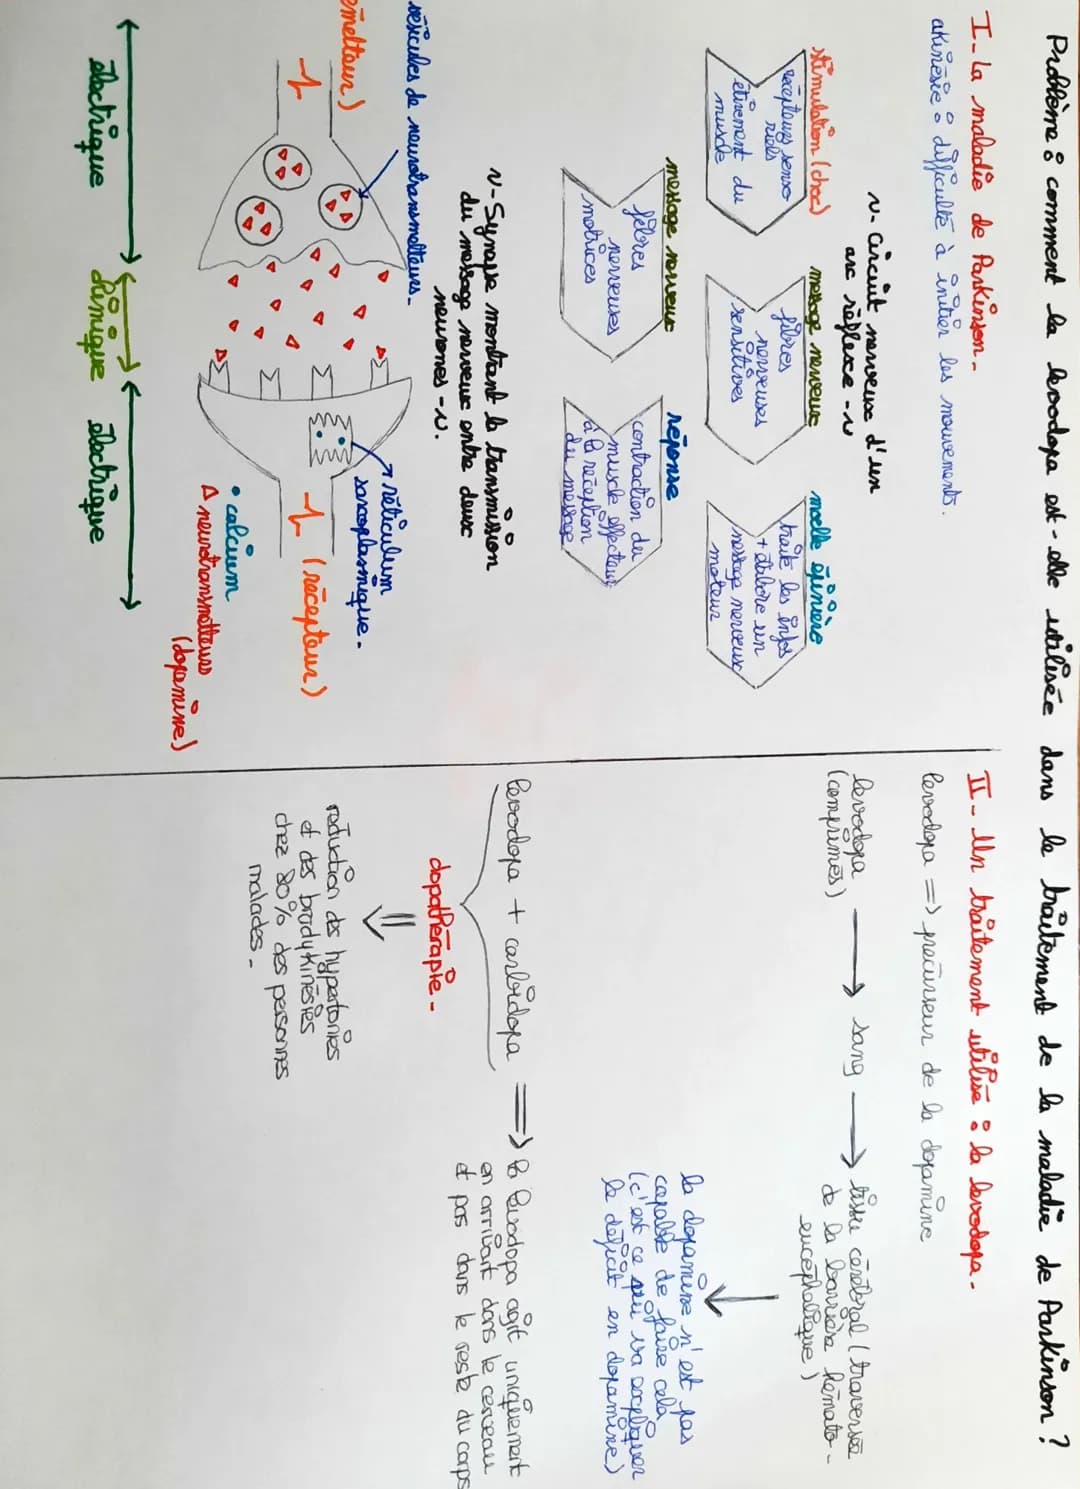 Problème : comment la levodopa est-elle utilisée dans le traitement de la maladie de Parkinson ?
I- la maladie de Parkinson-
akinésie : difficulté à initier les mouvements.
~- circuit nerveux d'un
arc réflexe -~
stimulation (choc)
récepteurs senso
riels
étirement du
muscle
message nerveux
fibres
nerveuses
sensitives
moelle épinière
traite les infos
+ élabore un
message nerveux
moteur
message nerveux
fibres
nerveuses
motrices
réponse
contraction du
muscle effecteur
à la réception
du message
~- Synapse montrant la transmission
du message nerveux entre deux
neurones -~.
vésicules de neurotransmetteurs-
emetteur)
réticulum
sarcoplasmique-
(récepteur)
• calcium
Δ neurotransmetteurs
(dopamine)
électrique
chimique
électrique
II- Un traitement utilisé : la levodopa-
levodopa => précurseur de la dopamine
levodopa
(comprimés)
sang
tissu cérébral (traversée
de la barrière hémato-
encéphalique)
la dopamine n'est pas
capable de faire cela
(c'est ce qui va expliquer
le déficit en dopamine)
levodopa + carbidopa => la levodopa agit uniquement
en arrivant dans le cerveau
et pas dans le reste du corps
dopathérapie-
réduction des hypertonies
et des bradykinésies
chez 80% des personnes
malades-